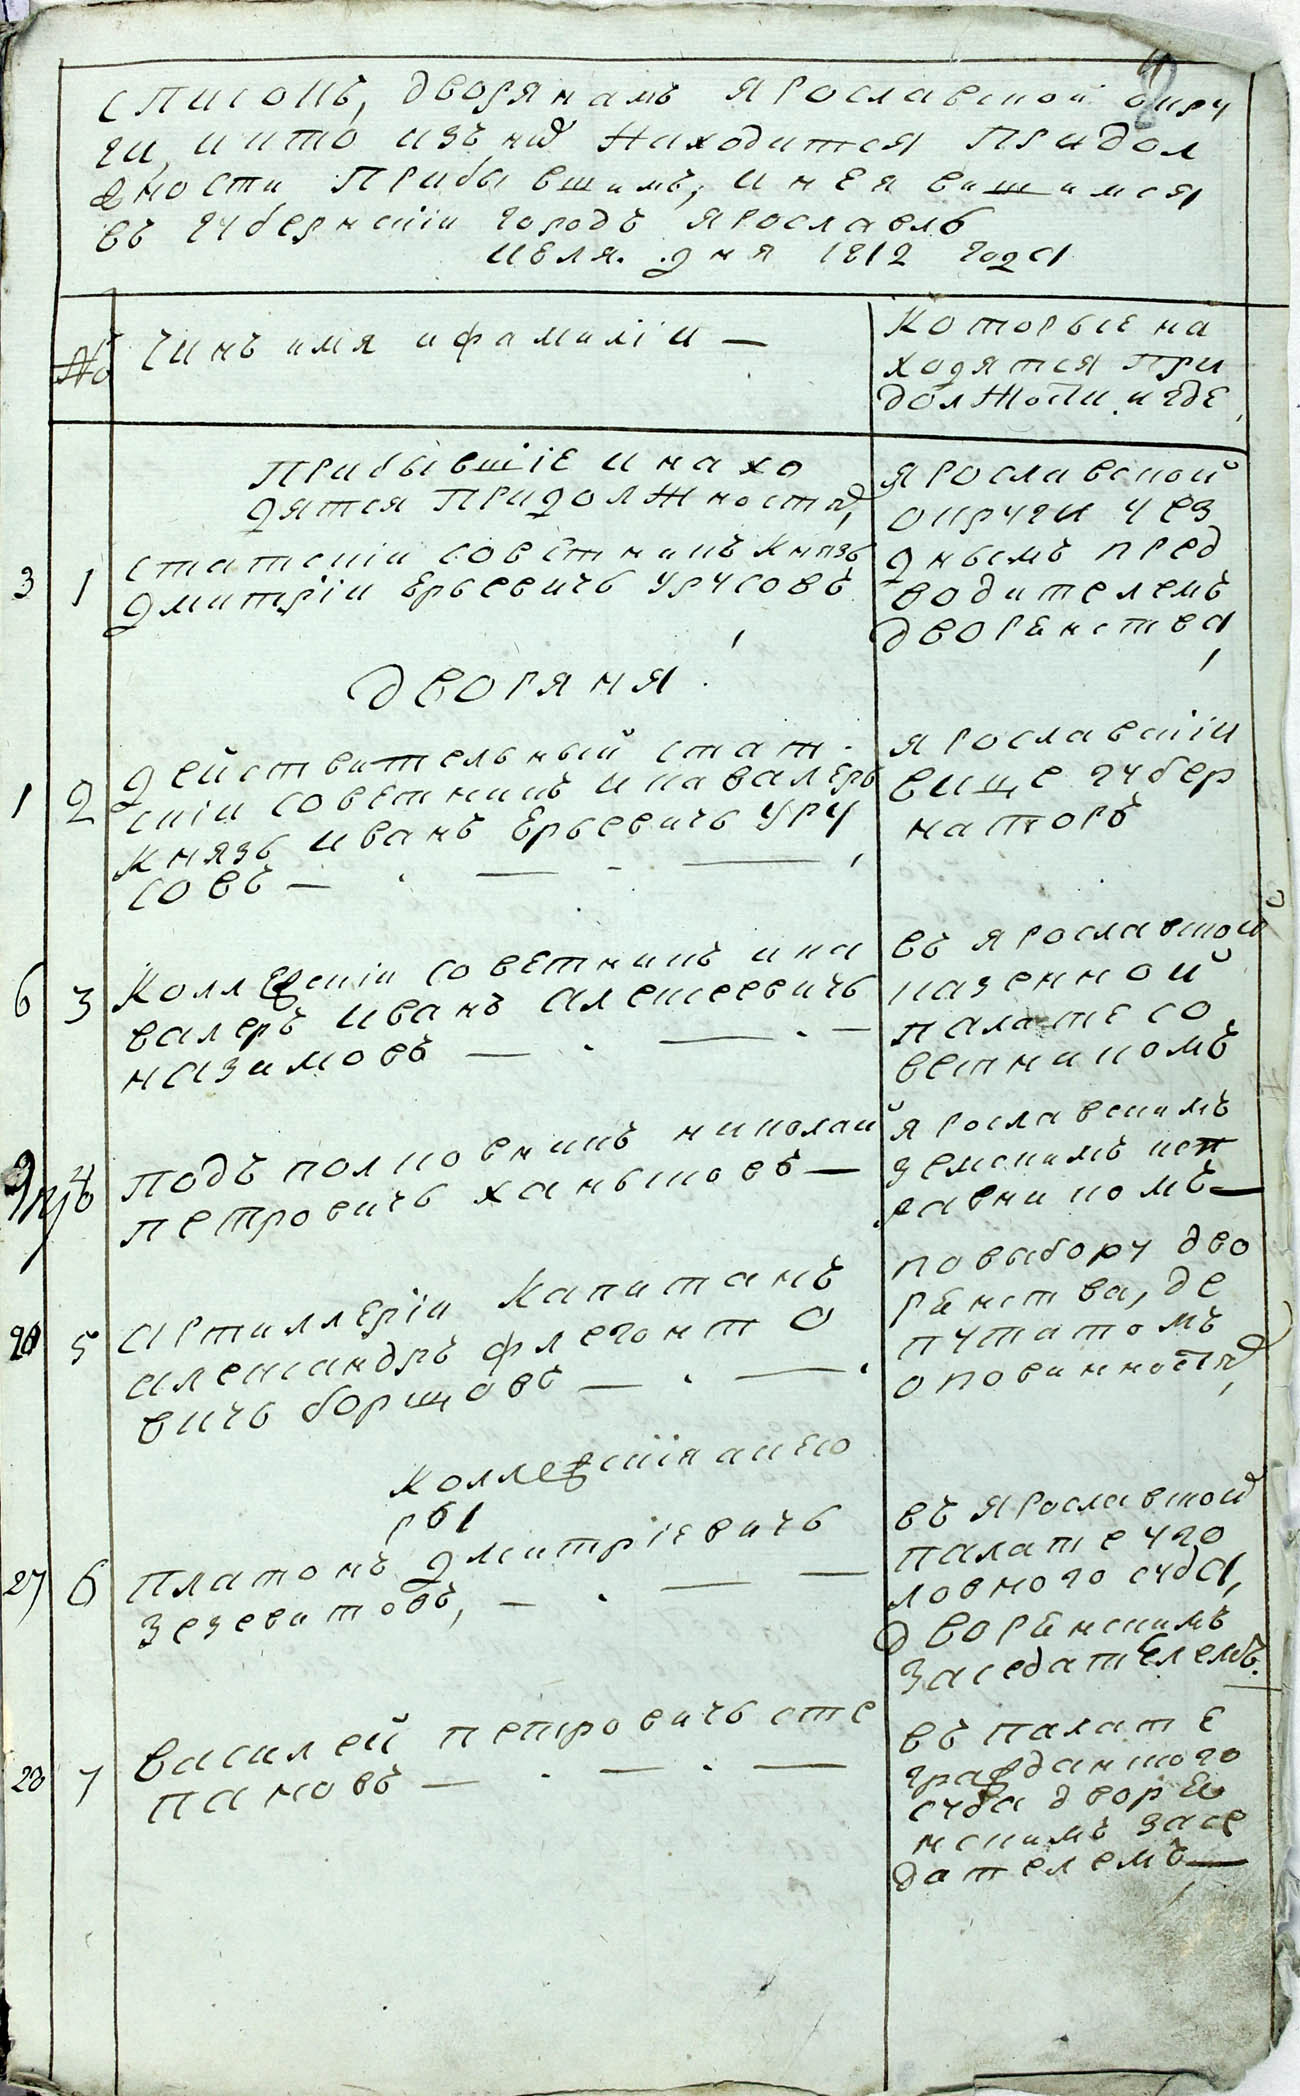 Списокъ, дворянамъ Ярославской окру
ги, и кто изъ них находится придол
жности Прибывшимъ, инея вишимся
въ губернскіи городъ Ярославль
Июля. дня 1812 года
№
Чинъ имя ифамиліи —
Которые на
ходятся При
должости, игде
Прибывшіе инахо
дятся Придолжностях,
3
1
статскіи советникъ князь
Дмитріи Ерьевичь Урусовъ
Ярославской
округи уез
днымъ пред
водителемъ
дворенства,
дворяня.
1
2
действительный стат
скіи советникъ икавалеръ
Князь Иванъ Ерьевичь Уру
совъ —
Ярославскіи
вище губер
наторъ
6
3
Коллежскіи советникъ ика
валеръ Иванъ Алексеевичь
Назимовъ —
въ Ярославской
казенной
палате со
ветникомъ
4
подъ полковникъ николай
петровичь ханыковъ —
Ярославскимъ
земскимъ исп
равникомъ —
20
5
Артиллеріи Капитанъ
Александръ флегонто
вичь борщовъ —
повыбору дво
ренства, де
путатомъ
оповинностях,
Коллежскія асесо
ры
27
6
Платонъ Дмитріевичь
Зезевитовъ, —
въ Ярославской
палате уго
ловного суда,
дворенскимъ
заседателемъ.
28
7
Василей петровичь сте
пановъ —
въ палате
гражданского
суда дворе
нскимъ засе
дателемъ —